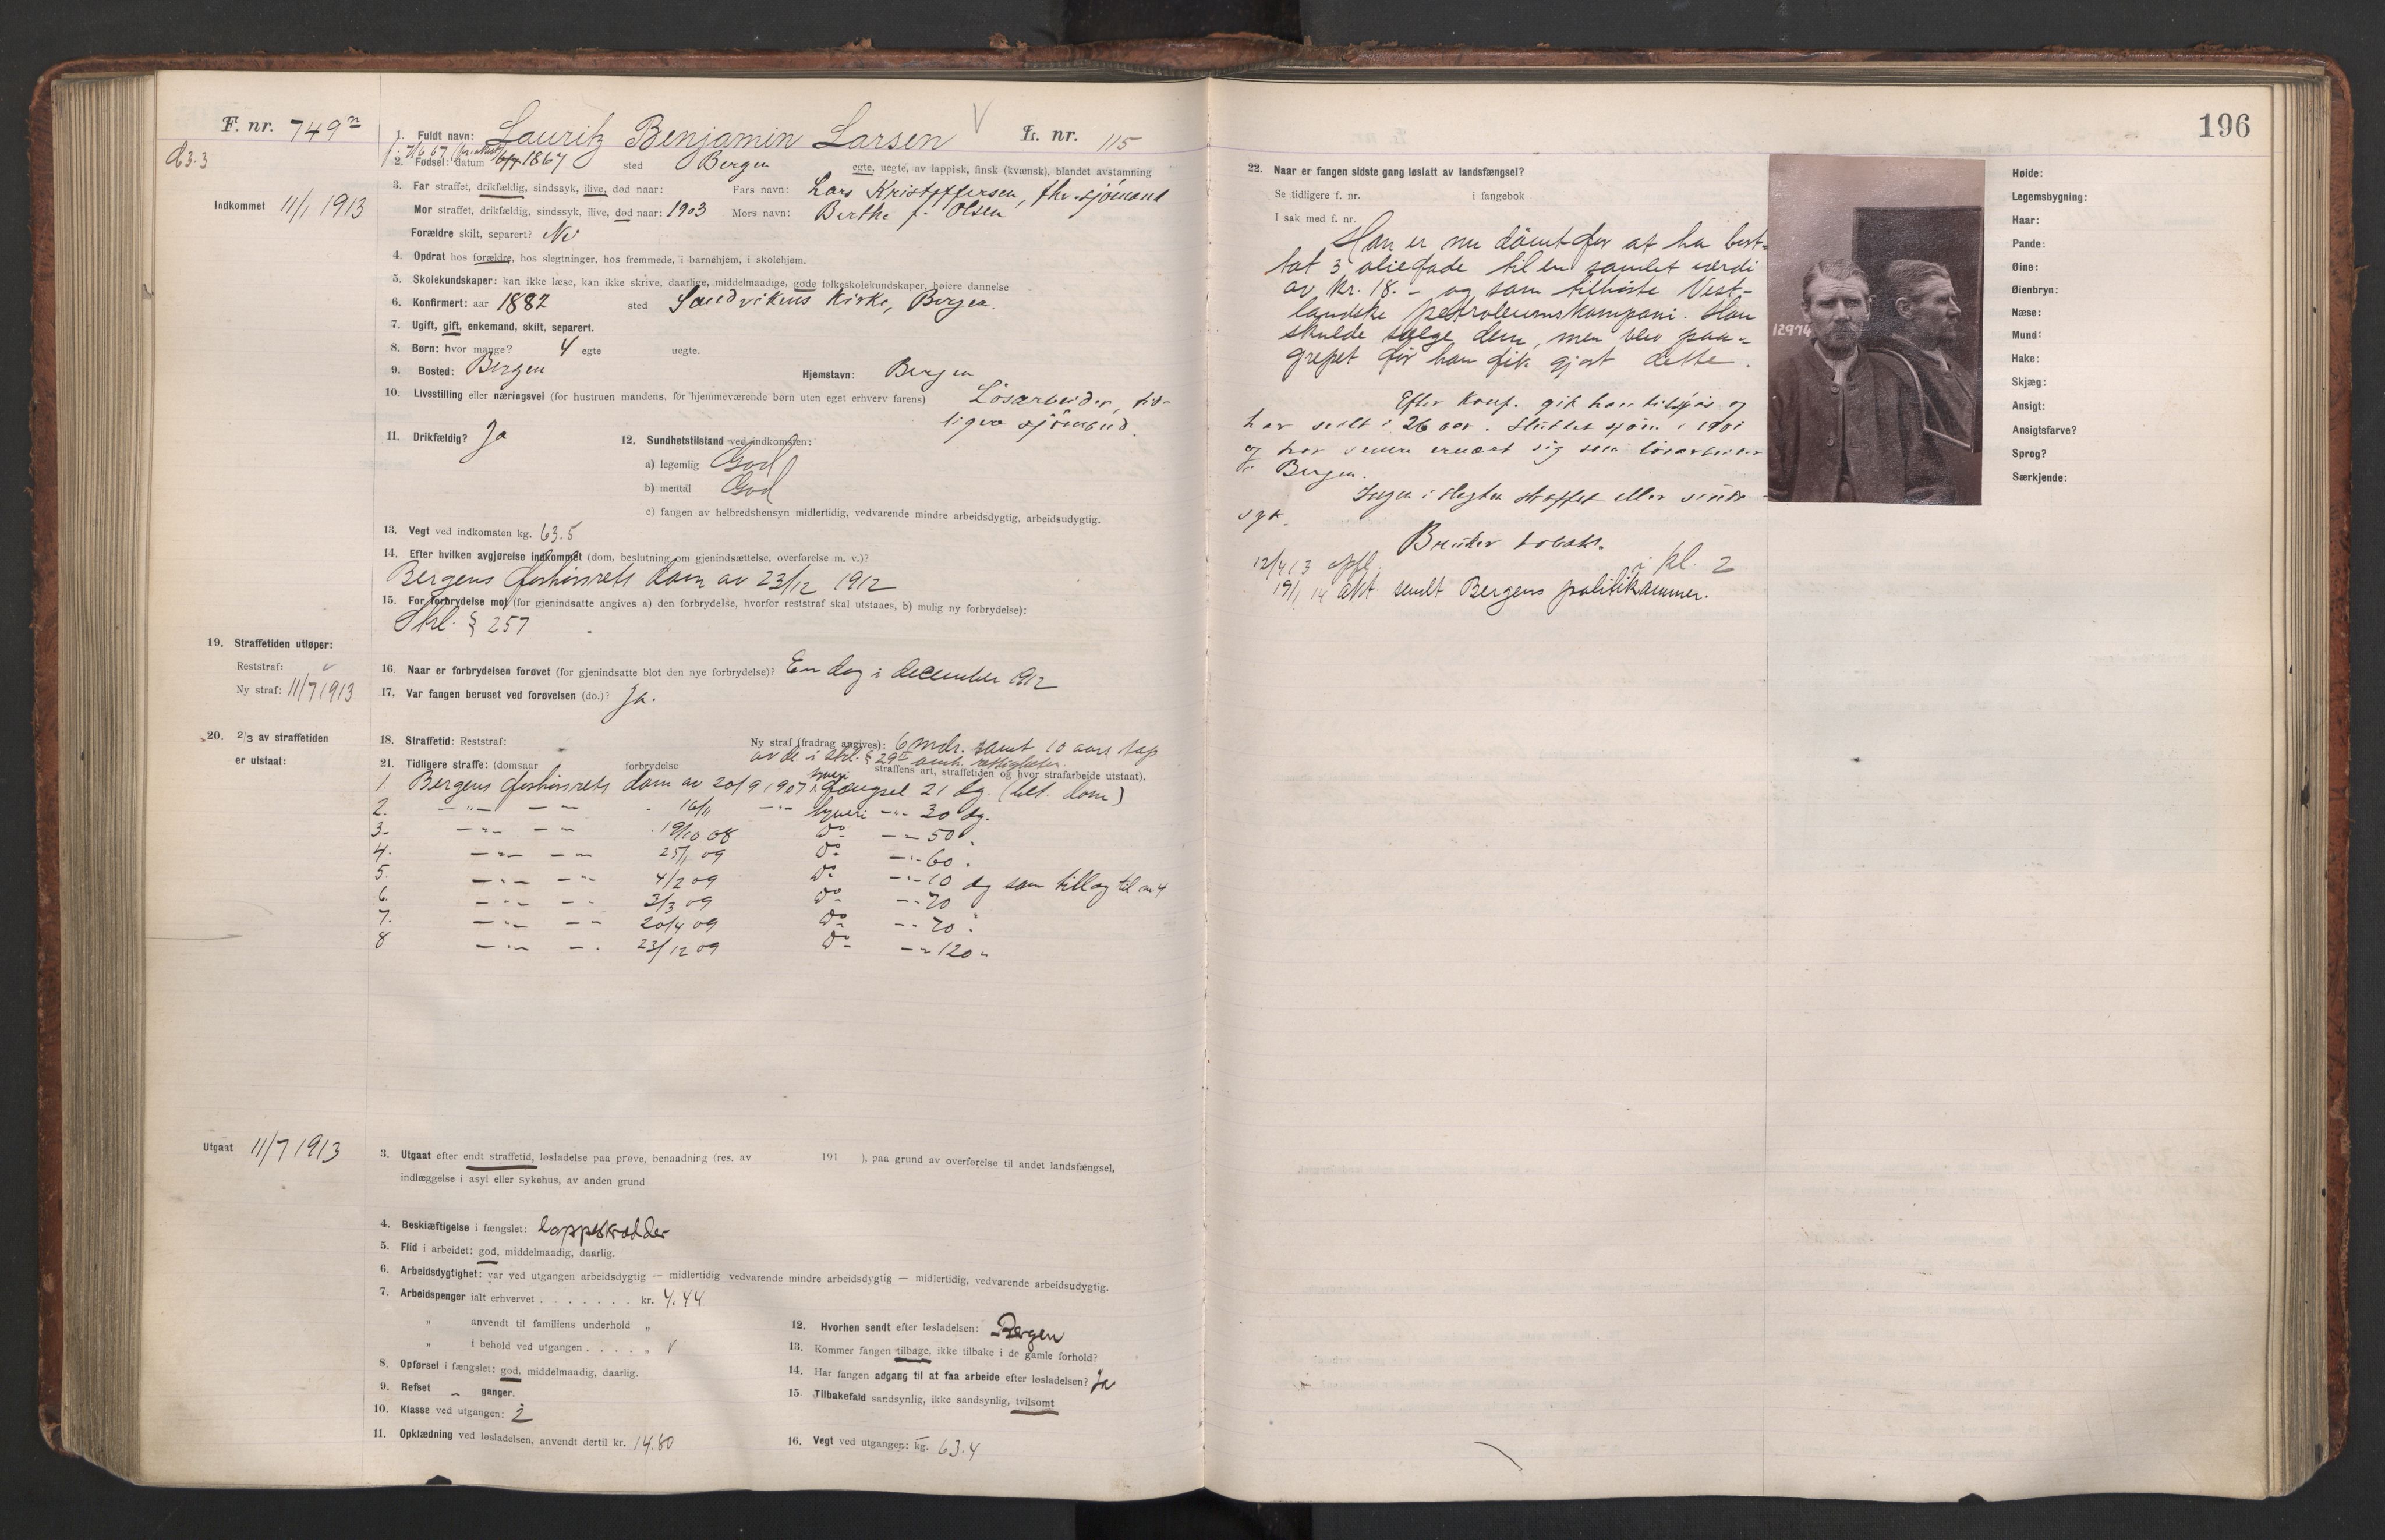 F. nr. 749
d3.3
1. Fuldt navn: Lauritz Benjamin Larsen V L. nr. 115
2. Fødsel: datum 6/7 1867 sted Bergen egte, uegte, av lappisk, finsk (kvænsk), blandet avstamning
Indkommet 11/1 1913
3. Far straffet, drikfældig, sindssyk, ilive, død naar: Fars navn: Lars Kristoffersen, fhv. sjömand
Mor straffet, drikfældig, sindssyk, ilive, død naar: 1903 Mors navn: Berthe f. Olsen
Forældre skilt, separert? Nei
4. Opdrat hos forældre, hos slegtninger, hos fremmede, i barnehjem, i skolehjem.
5. Skolekundskaper: kan ikke læse, kan ikke skrive, daarlige, middelmaadige, gode folkeskolekundskaper, høiere dannelse
6. Konfirmert: aar 1882 sted Sandvikens Kirke, Bergen.
7. Ugift, gift, enkemand, skilt, separert.
8. Børn: hvor mange? 4 egte uegte.
9. Bosted: Bergen Hjemstavn: Bergen
10. Livsstilling eller næringsvei (for hustruen mandens, for hjemmeværende børn uten eget erhverv farens) Lösarbeider, tid-
ligere sjömand.
11. Drikfældig? Ja 12. Sundhetstilstand ved indkomsten:
a) legemlig God
b) mental God
c) fangen av helbredshensyn midlertidig, vedvarende mindre arbeidsdygtig, arbeidsudygtig.
13. Vegt ved indkomsten kg. 63.5
14. Efter hvilken avgjørelse indkommet (dom, beslutning om gjenindsættelse, overførelse m. v.)?
Bergens forhörsrets dom av 23/12 1912
15. For forbrydelse mot (for gjenindsatte angives a) den forbrydelse, hvorfor reststraf skal utstaaes, b) mulig ny forbrydelse):
Strl. § 257
19. Straffetiden utløper:
Reststraf: v
Ny straf: 11/7 1913
16. Naar er forbrydelsen forøvet (for gjenindsatte blot den nye forbrydelse)? En dag i december 1912
17. Var fangen beruset ved forøvelsen (do.)? Ja.
20. 2/3 av straffetiden
er utstaat:
18. Straffetid: Reststraf: Ny straf (fradrag angives): 6 mdr. samt 10 aars tap
av de i strl. § 29 omh. rettigheter.
21. Tidligere straffe: (domsaar forbrydelse straffens art, straffetiden og hvor strafarbeide utstaat).
1. Bergens forhörsrets dom av 20/9 1907 tyveri fængsel 21 dg. (bet. dom)
2. —"— — — 16/11 —"— tyveri —"— 30 dg.
3. —"— — — 19/10 08 Do —"— 50 "
4. —"— — — 25/1 09 Do —"— 60 "
5. —"— — — 4/2 09 Do —"— 10 dg som tillæg til nr 4
6. —"— — — 3/3 09 Do —"— 70
7. —"— — — 20/4 09 Do —"— 70 "
8 —"— — — 23/12 09 Do —"— 120 "
Utgaat 11/7 1913
3. Utgaat efter endt straffetid, løsladelse paa prøve, benaadning (res. av 191 ), paa grund av overførelse til andet landsfængsel,
indlæggelse i asyl eller sykehus, av anden grund
4. Beskjæftigelse i fængslet: lappeskrædder
5. Flid i arbeidet: god, middelmaadig, daarlig.
6. Arbeidsdygtighet: var ved utgangen arbeidsdygtig — midlertidig vedvarende mindre arbeidsdygtig — midlertidig, vedvarende arbeidsudygtig.
7. Arbeidspenger ialt erhvervet . . . . . . . kr. 4.44
" anvendt til familiens underhold "
" i behold ved utgangen . . . . " v
8. Opførsel i fængslet: god, middelmaadig, daarlig.
9. Refset - ganger.
10. Klasse ved utgangen: 2
11. Opklædning ved løsladelsen, anvendt dertil kr. 14.80
12. Hvorhen sendt efter løsladelsen: Bergen
13. Kommer fangen tilbage, ikke tilbake i de gamle forhold?
14. Har fangen adgang til at faa arbeide efter løsladelsen? Ja
15. Tilbakefald sandsynlig, ikke sandsynlig, tvilsomt
16. Vegt ved utgangen: kg. 63.4
196
22. Naar er fangen sidste gang løslatt av landsfængsel?
Se tidligere f. nr. i fangebok
I sak med f. nr.
Han er nu dömt for at ha bort-
tat 3 oliefade til en samlet værdi
av kr. 18.- og som tilhörte Vest-
landske petroleumskompani. Han
skulde sælge dem, men blev paa-
grepet för han fik gjort dette.
Efter konf. gik han tilsjös og
har seilt i 26 aar. Sluttet sjöen i 1901
og har senere ernært sig som lösarbeider
i Bergen.
Ingen i slegten straffet eller sinds-
syk.
Bruker tobak.
12/4 13 opfl. i kl. 2
19/1 14 akt. sendt Bergens politikammer.
12974
Høide:
Legemsbygning:
Haar:
Pande:
Øine:
Øienbryn:
Næse:
Mund:
Hake:
Skjæg:
Ansigt:
Ansigtsfarve?
Sprog?
Særkjende: